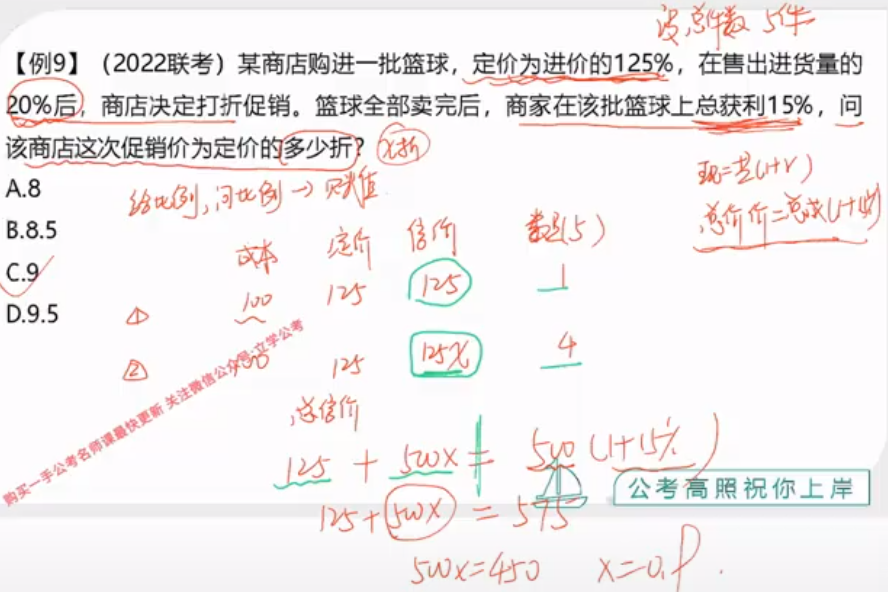 设,总件数 5件
【例9】（2022联考）某商店购进一批篮球，定价为进价的125%，在售出进货量的
20%后，商店决定打折促销。篮球全部卖完后，商家在该批篮球上总获利15%，问
该商店这次促销价为定价的多少折？ x折
A.8
给比例,问比例→赋值
现=基(1+r)
B.8.5
总售价=总成(1+15%)
成本 定价 售价 数量(5)
C.9
① 100 125 125 1
D.9.5
② 100 125 125x 4
总售价
125 + 500x = 500 (1+15%)
125+500x = 575
500x=450 x=0.9.
购买一手公考名师课最快更新 关注微信公众号:立学公考
公考高照祝你上岸